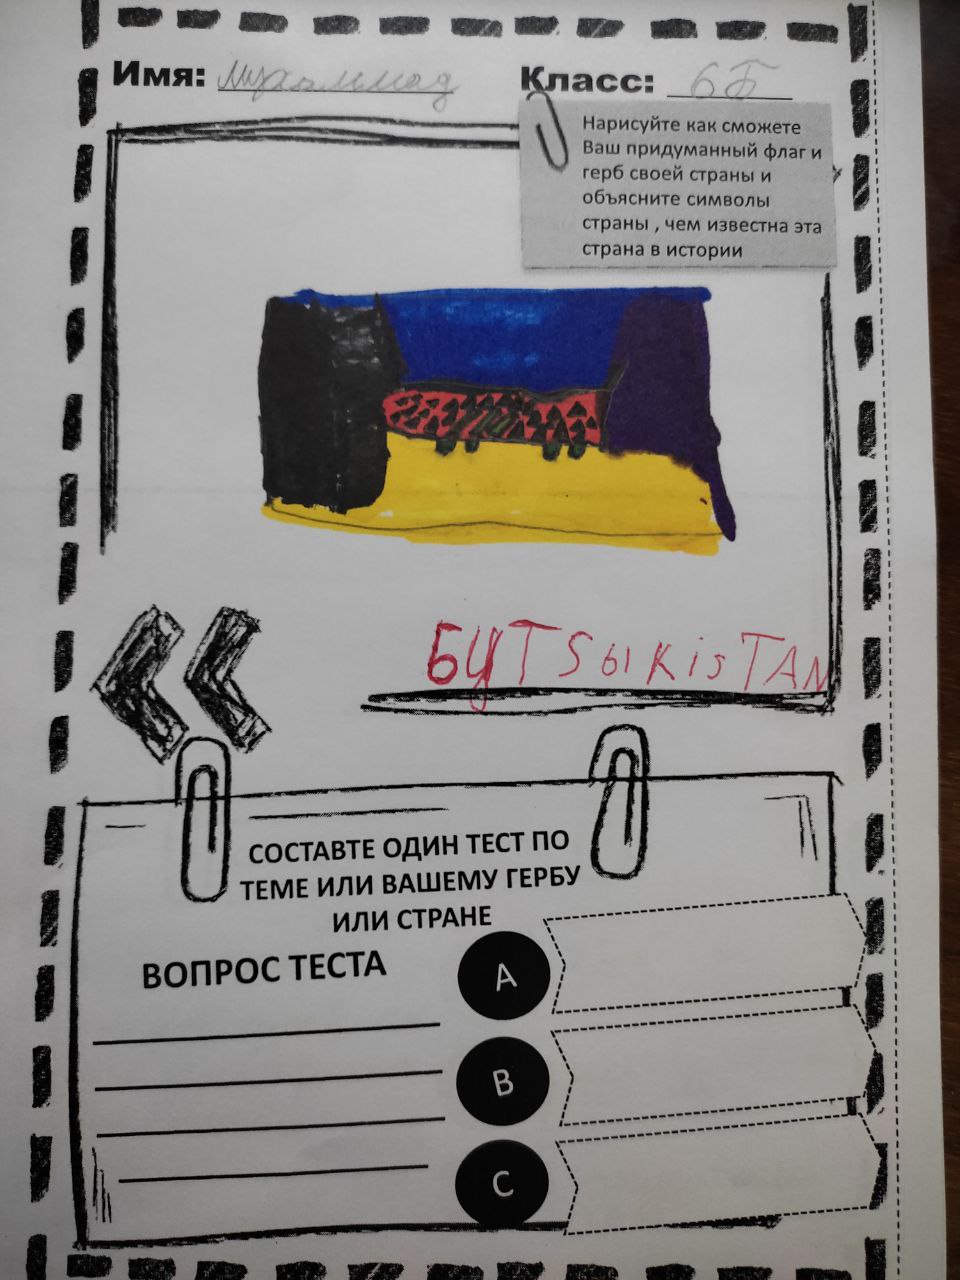 Имя: Мухаммад
Класс: 6Б
Нарисуйте как сможете
Ваш придуманный флаг и
герб своей страны и
объясните символы
страны , чем известна эта
страна в истории
БУТSЫKisTAN
СОСТАВТЕ ОДИН ТЕСТ ПО
ТЕМЕ ИЛИ ВАШЕМУ ГЕРБУ
ИЛИ СТРАНЕ
ВОПРОС ТЕСТА
A
B
C